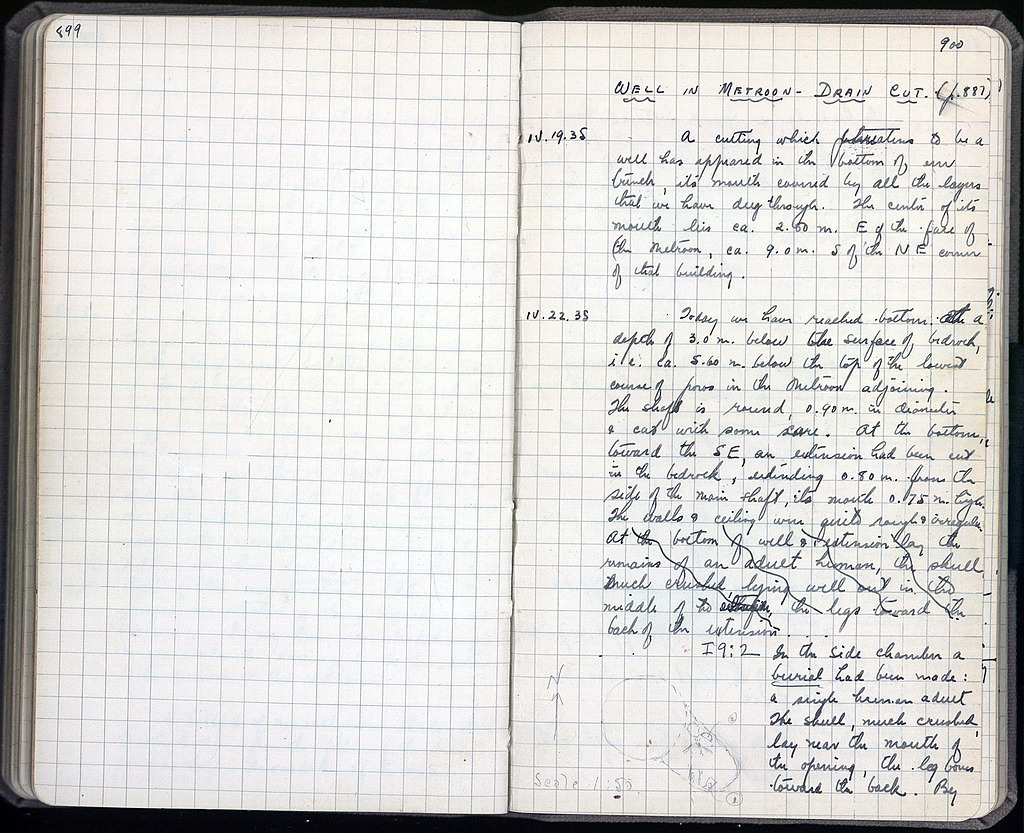 899
900
WELL IN METROON - DRAIN CUT. (p.887)
IV.19.35 A cutting which threatens to be a
well has appeared in the bottom of our
trench, its mouth covered by all the layers
that we have dug through. The center of its
mouth lies ca. 2.60 m. E of the face of
the Metroon, ca. 9.0 m. S of the NE corner
of that building.
IV.22.35 Today we have reached bottom at a
depth of 3.0 m. below the surface of bedrock,
i.e. ca. 5.60 m. below the top of the lowest
course of poros in the Metroon adjoining.
The shaft is round, 0.90 m. in diameter
& cut with some care. At the bottom,
toward the SE, an extension had been cut
in the bedrock, extending 0.80 m. from the
side of the main shaft, its mouth 0.75 m. high.
The walls & ceiling were quite rough & irregular.
At the bottom of well & extension lay the
remains of an adult human, the skull
much crushed, lying well out in the
middle of the the legs toward the
back of the extension.
I 9:2 In the side chamber a
burial had been made:
a single human adult
The skull, much crushed,
lay near the mouth of
the opening, the leg bones
toward the back. By
N
Scale 1:50
2
1